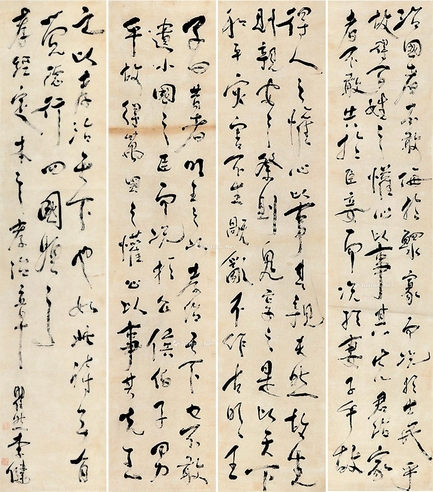 治國者不敢侮於鰥寡而況於士民乎
故得百姓之懽心以事其先君治家
者不敢失於臣妾而況於妻子乎故
得人之懽心以事其親夫然故生
則親安之祭則鬼享之是以天下
和平災害不生禍亂不作故明王
子曰昔者明王之以孝治天下也不敢
遺小國之臣而況於公侯伯子男
乎故得萬國之懽心以事其先王
之以孝治天下也如此詩云有
覺德行四國順之
孝經定本之孝治章
李健